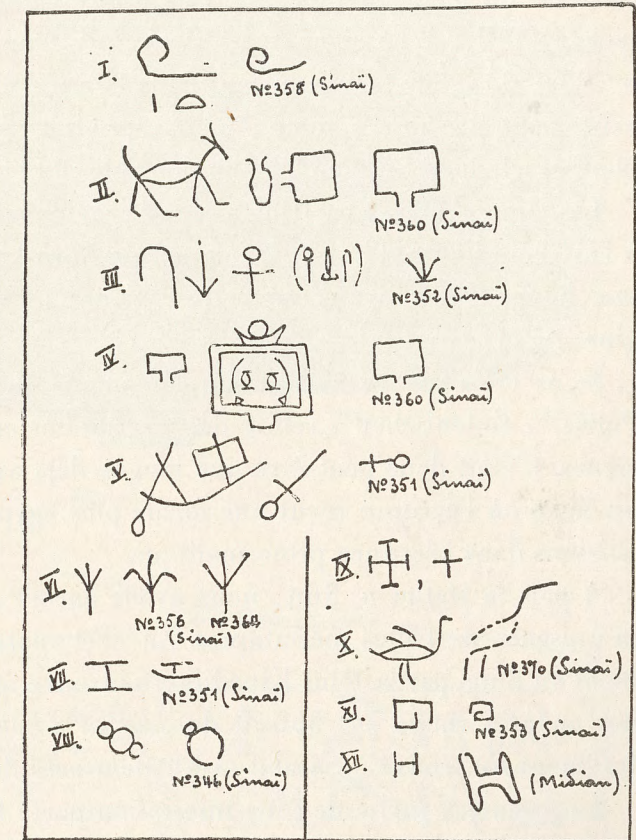 I. Nº358 (Sinaï)
II. Nº360 (Sinaï)
III. Nº352 (Sinaï)
IV. Nº360 (Sinaï)
V. Nº351 (Sinaï)
VI. Nº356 (Sinaï)
VII. Nº351 (Sinaï)
VIII. Nº346 (Sinaï)
IX.
X. Nº370 (Sinaï)
XI. Nº353 (Sinaï)
XII. (Midian)